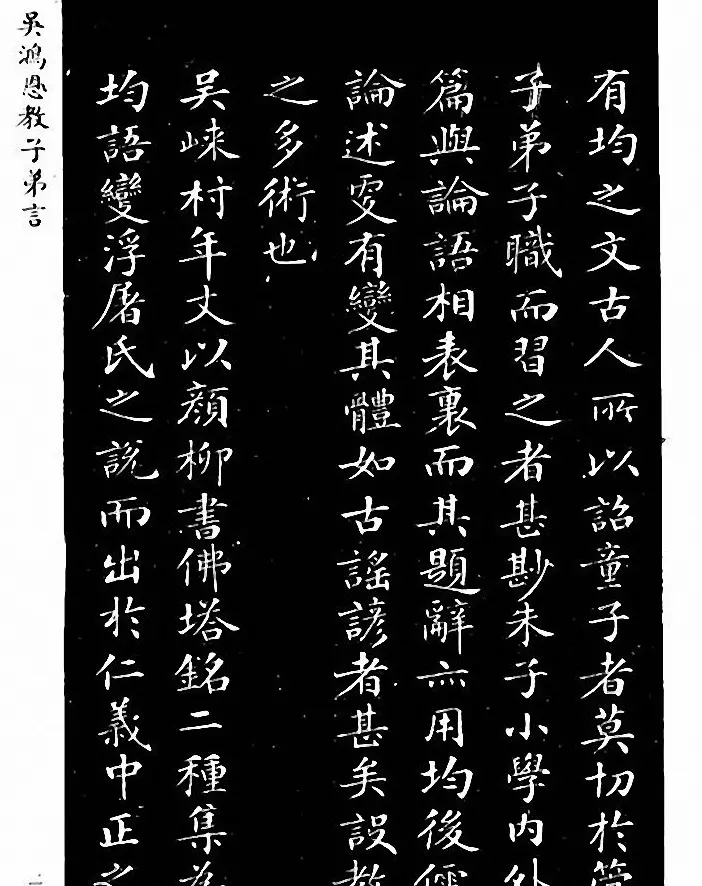 有均之文古人所以詔童子者莫切於管
子弟子職而習之者甚尠朱子小學內外
篇與論語相表裏而其題辭亦用均後儒
論述更有變其體如古謠諺者甚矣設教
之多術也
吳崍村年丈以顏柳書佛塔銘二種集為
均語變浮屠氏之說而出於仁義中正之
吳鴻恩教子弟言